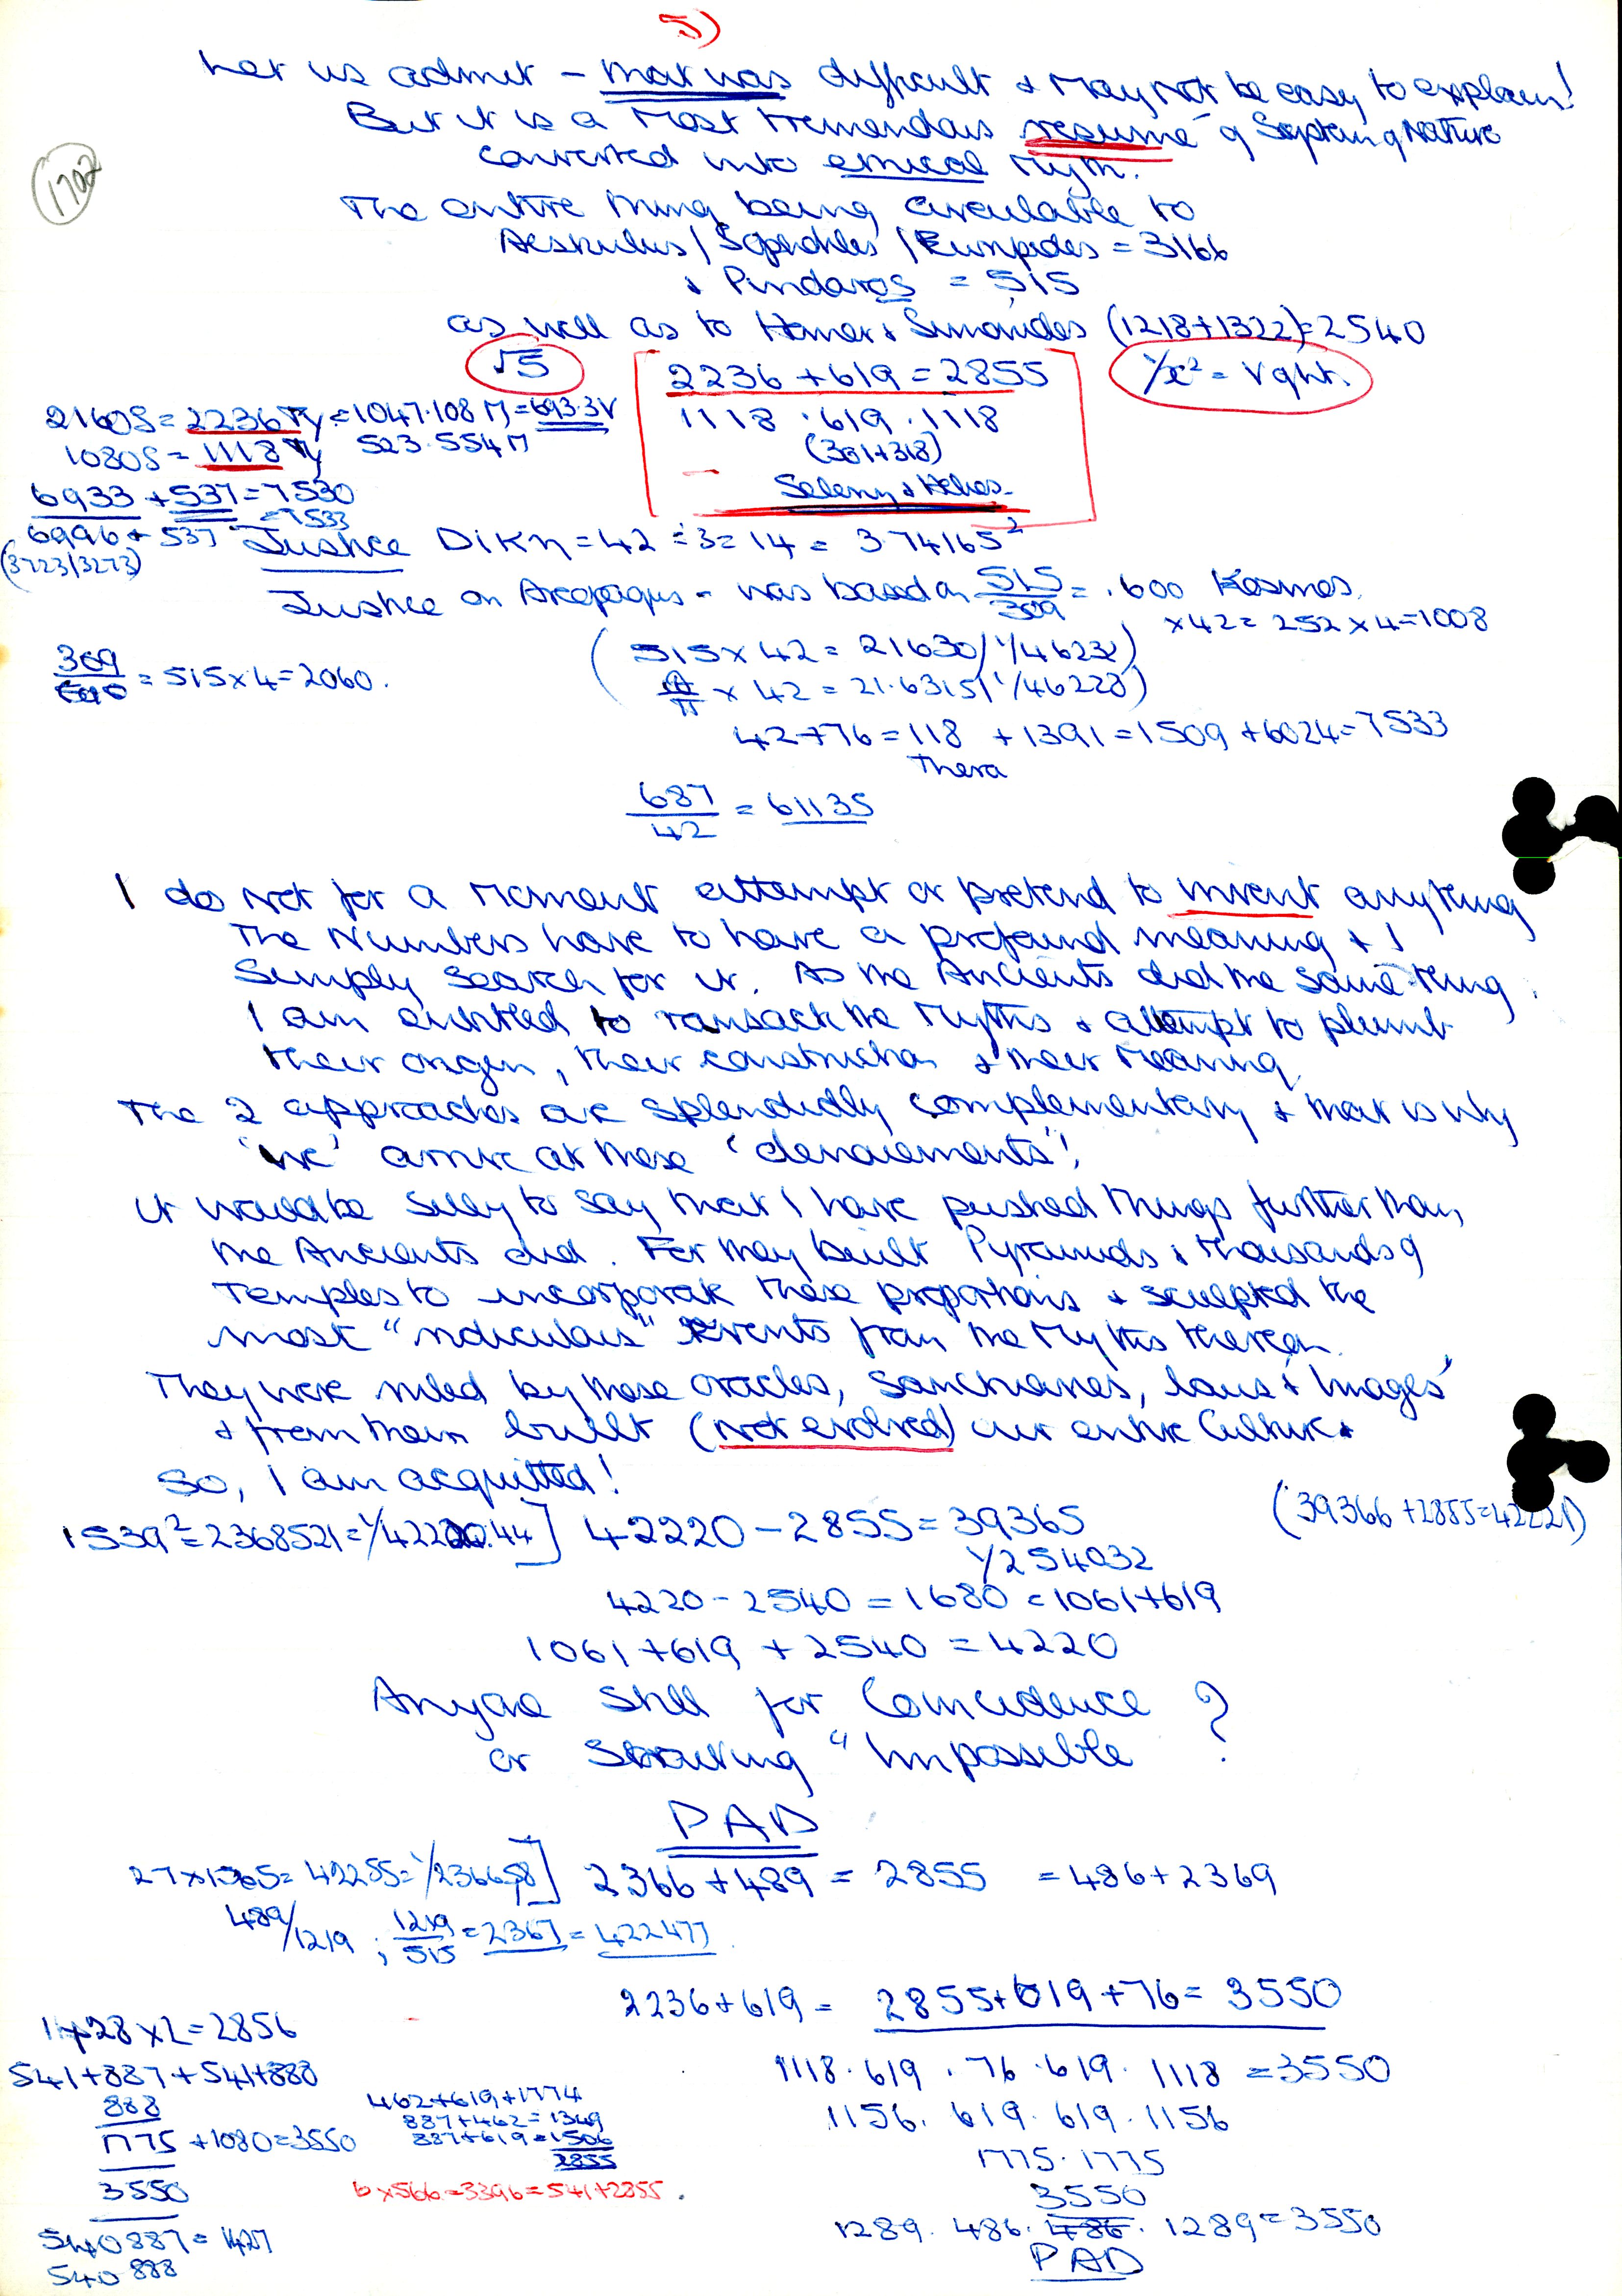 5)
Let us admit – that was difficult & may not be easy to explain!
But it is a most tremendous resumé of Septain of Nature
converted into ethical Myth.
1702
The entire thing being circulable to
Aeskulus / Sophokles / Euripedes = 3166
& Pindaros = 515
as well as to Homer & Simonides (1218+1322)=2540
√5
2236 + 619 = 2855
1/x² = Vght.
1118 · 619 · 1118
(301+318)
Seleny & Helios
2160S = 2236 Ty = 1047.108 M = 693.3V
1080S = 1118 Ty 523.554 M
6933 + 537 = 7530
= 7533
6996 + 537
(3723/3273)
Justice DiKn = 42 ÷ 3 = 14 = 3.74165²
Justice on Areopagus - was based on 515/309 = .600 Kosmos.
×42 = 252 × 4 = 1008
309/600 = 515 × 4 = 2060.
(515 × 42 = 21630 / 1/46232)
/π × 42 = 21.63151 / 1/46228)
42+76 = 118 + 1391 = 1509 + 6024 = 7533
Thera
687/42 = 61135
I do not for a moment attempt or pretend to invent anything
The Numbers have to have a profound meaning & I
simply search for it. As the Ancients did the same thing.
I am entitled to ransack the Myths & attempt to plumb
their origin, their construction & their meaning.
The 2 approaches are splendidly complementary & that is why
'we' arrive at these 'denouements'!
It would be silly to say that I have pushed things further than
the Ancients did. For they built Pyramids & thousands of
Temples to incorporate these proportions & sculpted the
most "ridiculous" Events from the Myths thereon.
They were ruled by these oracles, sanctuaries, laws & 'Images'
& from them built (not evolved) our entire Culture.
So, I am acquitted!
1539² = 2368521 = 1/42220.44] 42220 – 2855 = 39365
(39366 + 2855 = 42221)
1/254032
4220 – 2540 = 1680 = 1061+619
1061 + 619 + 2540 = 4220
Anyone still for Coincidence ?
or shouting "Impossible ?
PAD
27×1565 = 42255 = 1/236658] 2366 + 489 = 2855 = 486 + 2369
489/1219 ; 1219/515 = 2367 = 422477
2236 + 619 = 2855 + 619 + 76 = 3550
1428 × 2 = 2856
541 + 887 + 541 + 888
888
1775 + 1080 = 3550
3550
540 887 = 1427
540 888
462 + 619 + 1774
887 + 462 = 1349
887 + 619 = 1506
2855
6 × 566 = 3396 = 541 + 2855.
1118 · 619 · 76 · 619 · 1118 = 3550
1156. 619. 619. 1156
1775 · 1775
3550
1289. 486. 486. 1289 = 3550
PAD